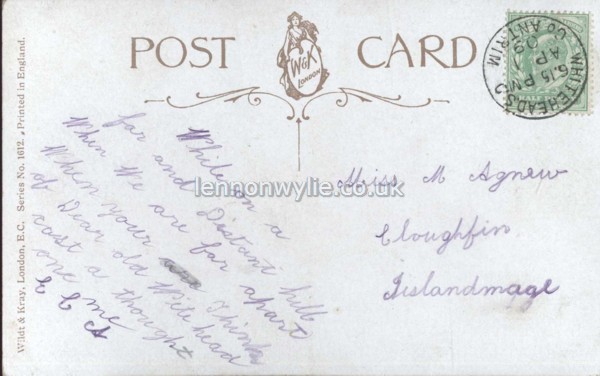 POST CARD
W&K
LONDON
WHITEHEAD
6.15 PM
AP
09
CO ANTRIM
While on a
far and Distant hill
When We are far apart
When your Think
of Dear old Whitehead
cast a thought
one me
E C A
Miss M Agnew
Cloughfin
Iislandmage
lennonwylie.co.uk
Wildt & Kray, London, E.C. Series No. 1612. Printed in England.